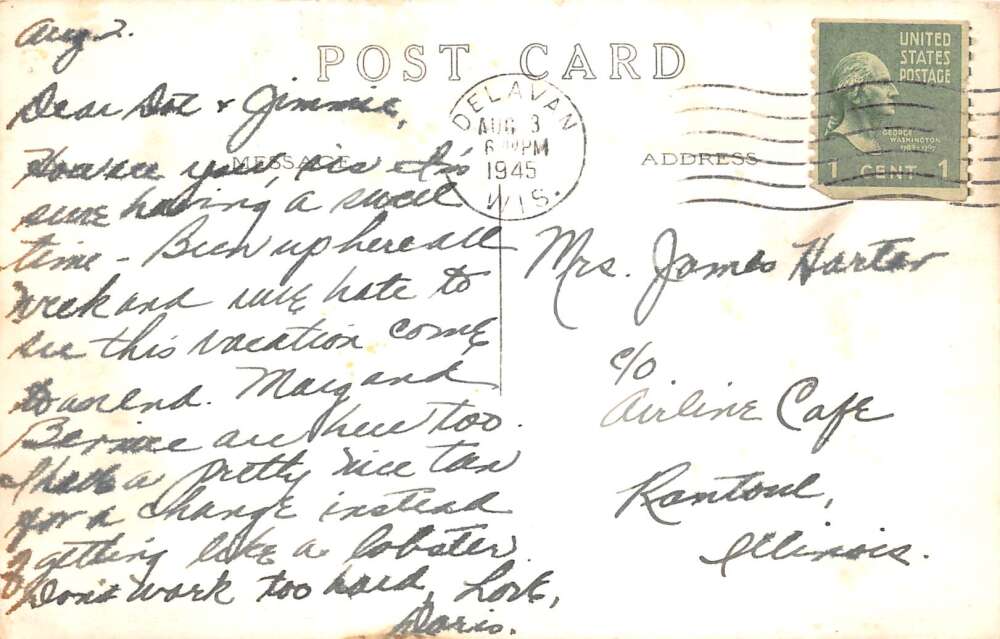 Aug 2.
POST CARD
Dear Dot & Jimmie,
MESSAGE
How are you, sis & I's
sure having a swell
time - Been up here all
week and sure hate to
see this vacation come
to an end. Marg and
Bernice are here too.
I have a pretty nice tan
for a change instead
of getting like a lobster.
Don't work too hard, Love,
Doris.
DELAVAN
AUG 3
6 PM
1945
WIS.
UNITED
STATES
POSTAGE
GEORGE
WASHINGTON
1789-1797
1 CENT 1
ADDRESS
Mrs. James Harter
c/o
Airline Cafe
Rantoul,
Illinois.